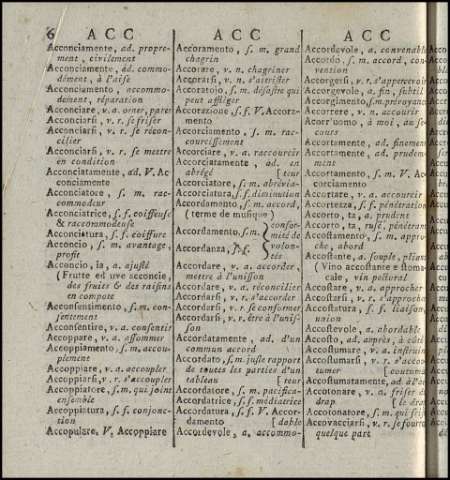 6 ACC
Acconciamente, ad. propre-
ment, civilement
Acconciamente, ad. commo-
dément, à l'aise
Acconciamento, accommo-
dement, réparation
Acconciare, v. a. orner, parer
Acconciarsi, v. r. se friser
Acconciarsi, v. r. se récon-
cilier
Acconciarsi, v. r. se mettre
en condition
Acconciatamente, ad. V. Ac-
conciamente
Acconciatore, s. m. rac-
commodeur
Acconciatrice, s. f. coiffeuse
& raccommodeuse
Acconciatura, s. f. coiffure
Acconcio, s. m. avantage,
profit
Acconcio, ia, a. ajusté
(Frutte ed uve acconcie,
des fruits & des raisins
en compote
Acconsentimento, s. m. con-
sentement
Acconsentire, v. a. consentir
Accoppare, v. a. assommer
Accoppiamento, s. m. accou-
plement
Accoppiare, v. a. accoupler
Accoppiarsi, v. r. s'accoupler
Accoppiatore, s. m. qui joint
ensemble
Accoppiatura, s. f. conjonc-
tion
Accopulare, V. Accoppiare
ACC
Accoramento, s. m. grand
chagrin
Accorare, v. n. chagriner
Accorarsi, v. r. s'attrister
Accoratojo, s. m. désastre qui
peut affliger
Accorazione, s. f. V. Accora-
mento
Accorciamento, s. m. rac-
courcissement
Accorciare, v. a. raccourcir
Accorciatamente, ad. en
abrégé [teur
Accorciatore, s. m. abrévia-
Accorciatura, s. f. diminution
Accordamento, s. m. accord,
(terme de musique)
Accordamento, s. m. confor-
mité de
Accordanza, s. f. volon-
tés
Accordare, v. a. accorder,
mettre à l'unisson
Accordare, v. a. réconcilier
Accordarsi, v. r. s'accorder
Accordarsi, v. r. se conformer
Accordarsi, v. r. être à l'unis-
son
Accordatamente, ad. d'un
commun accord
Accordato, s. m. juste rapport
de toutes les parties d'un
tableau [teur
Accordatore, s. m. pacifica-
Accordatrice, s. f. médiatrice
Accordatura, s. f. V. Accor-
damento [dable
Accordevole, a. accommo-
ACC
Accordevole, a. convenable
Accordo, s. m. accord, con-
vention
Accorgersi, v. r. s'appercevoir
Accorgevole, a. fin, subtil
Accorgimento, s. m. prévoyance
Accorrere, v. n. accourir
Accorr'uomo, à moi, au se-
cours
Accortamente, ad. finement
Accortamente, ad. prudem-
ment
Accortamento, s. m. V. Ac-
corciamento
Accortare, v. a. accourcir
Accortezza, s. f. pénétration
Accorto, ta, a. prudent
Accorto, ta, rusé, pénétrant
Accostamento, s. m. appro-
che, abord
Accostante, a. souple, pliant
(Vino accostante e stoma-
cale, vin pectoral
Accostare, v. a. approcher
Accostarsi, v. r. s'approcher
Accostatura, s. f. liaison,
union
Accostevole, a. abordable
Accosto, ad. auprès, à côté
Accostumare, v. a. instruire
Accostumarsi, v. r. s'accou-
tumer [coutume
Accostumatamente, ad. à l'ac-
Accotonare, v. a. friser du
drap [le drap
Accotonatore, s. m. qui frise
Accovacciarsi, v. r. se fourrer
quelque part